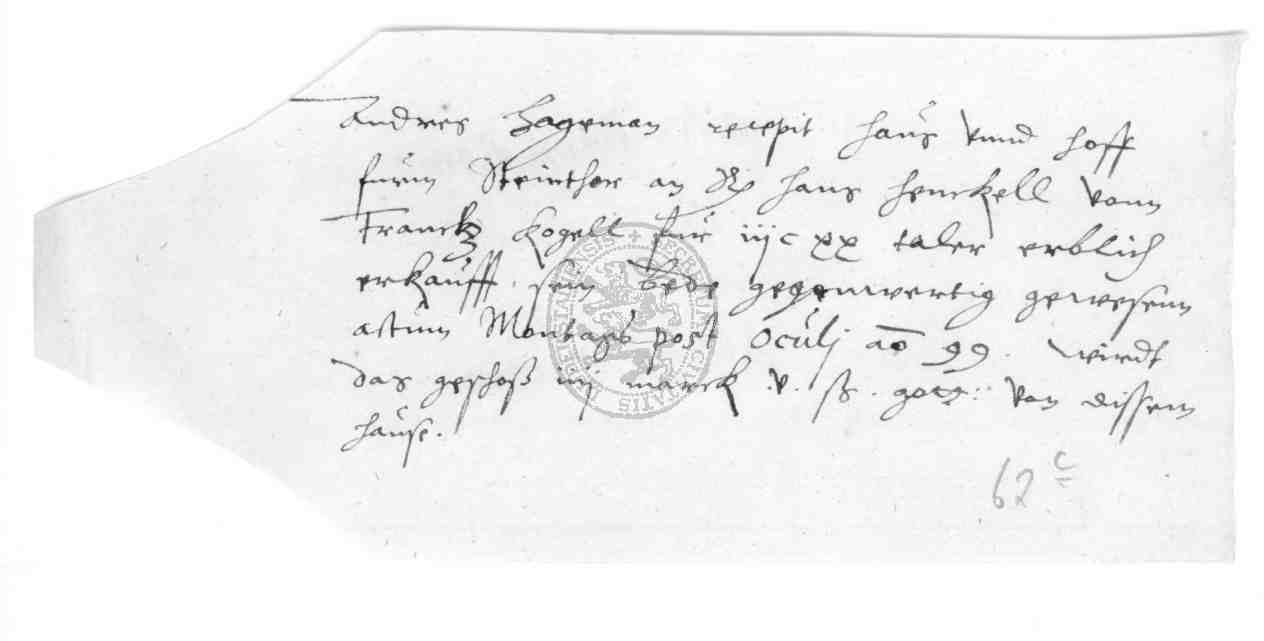 Andres Hageman recepit haus vnnd hoff
furm Steinthor an Hans Henckell vonn
Franck Kogell fur iijc xx taler erblich
erkaufft, sein bede gegenwertig gewesenn
actum Montags post Oculi ao 99. wirdt
das geschoß iij marck v. ß. gott: von dissem
hause.
62 c